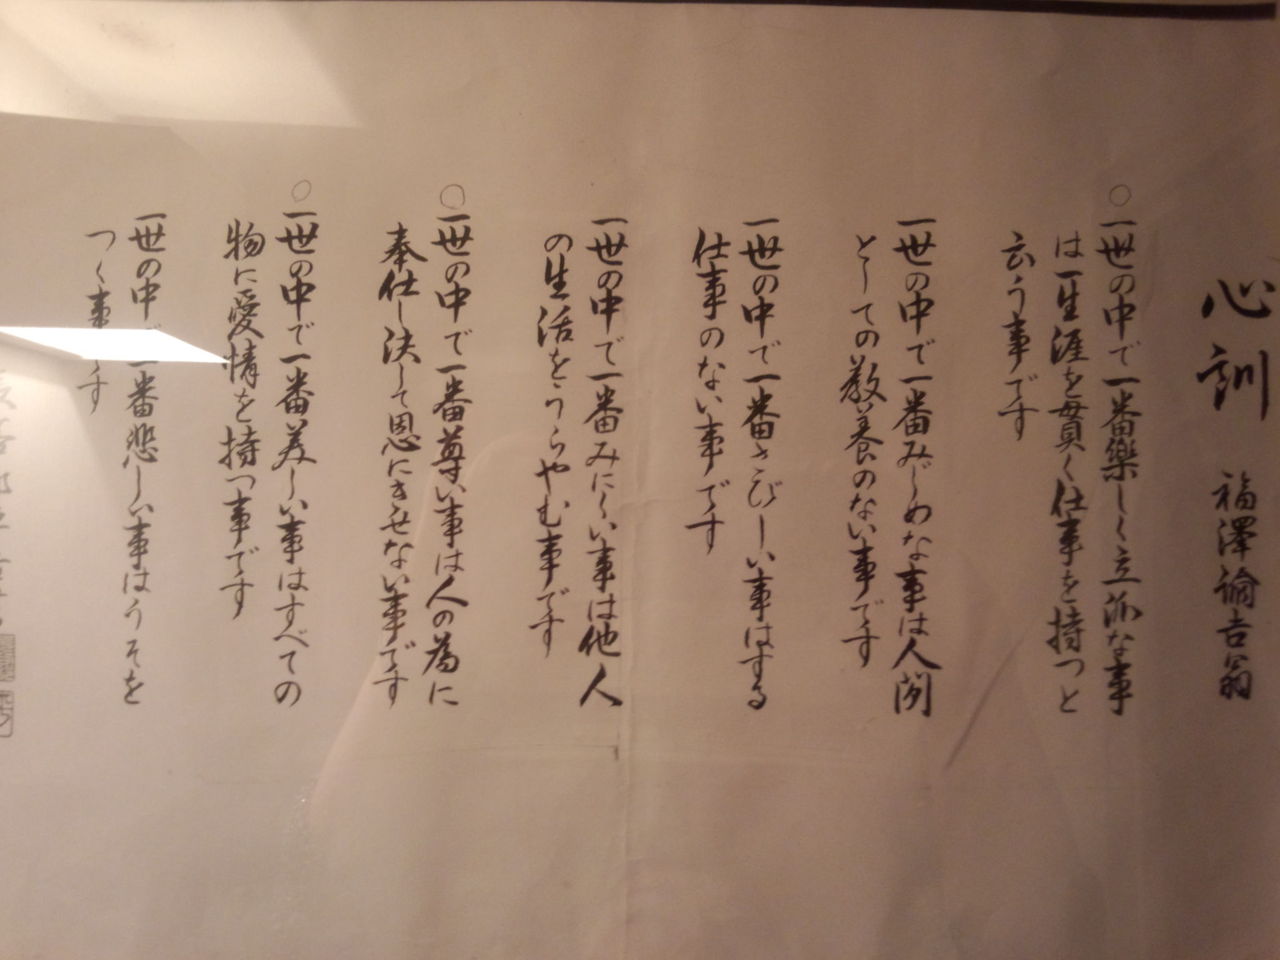 心訓 福澤諭吉翁
○一世の中で一番樂しく立派な事
は一生涯を貫く仕事を持つと
云う事です
一世の中で一番みじめな事は人間
としての教養のない事です
一世の中で一番さびしい事はする
仕事のない事です
一世の中で一番みにくい事は他人
の生活をうらやむ事です
○一世の中で一番尊い事は人の為に
奉仕し決して恩にきせない事です
○一世の中で一番美しい事はすべての
物に愛情を持つ事です
一世の中で一番悲しい事はうそを
つく事です